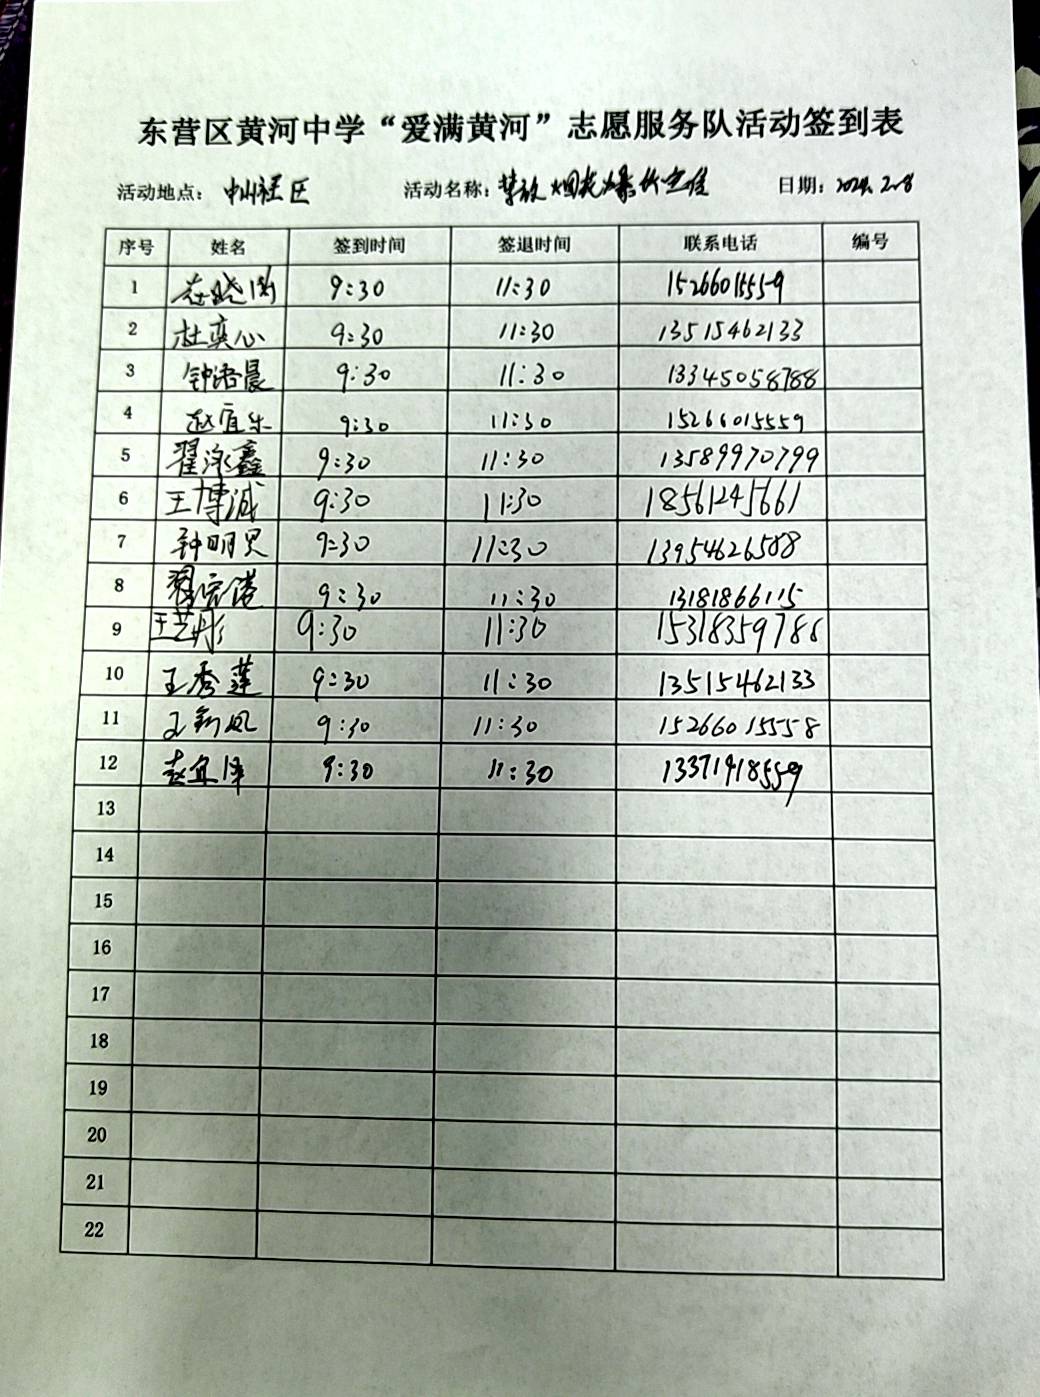 东营区黄河中学“爱满黄河”志愿服务队活动签到表
活动地点：中山社区 活动名称：禁放烟花爆竹宣传 日期：2024.2.8
序号 姓名 签到时间 签退时间 联系电话 编号
1 9:30 11:30 15266015559
2 杜奕心 9:30 11:30 13515462133
3 钟浩晨 9:30 11:30 13345058788
4 赵宜乐 9:30 11:30 15266015559
5 翟泳鑫 9:30 11:30 13589970799
6 王博诚 9:30 11:30 18561245661
7 钟明贝 9:30 11:30 13954626588
8 9:30 11:30 13181866115
9 王艺彤 9:30 11:30 15318359786
10 王秀莲 9:30 11:30 13515462133
11 9:30 11:30 15266015558
12 赵宜泽 9:30 11:30 13371918559
13
14
15
16
17
18
19
20
21
22